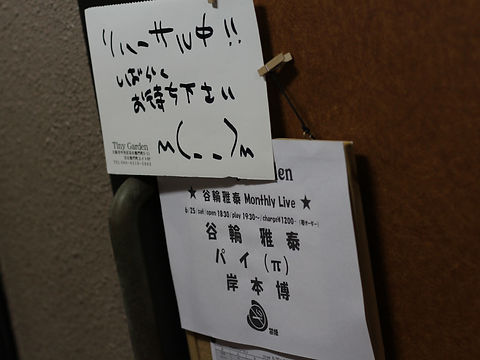 リハーサル中!!
しばらく
お待ち下さい
m(_ _)m
Tiny Garden
den
★ 谷輪雅泰 Monthly Live ★
6/25/sat/open 18:30/play 19:30〜/charge¥1200-(要オーダー)
谷輪 雅泰
パイ(π)
岸本 博